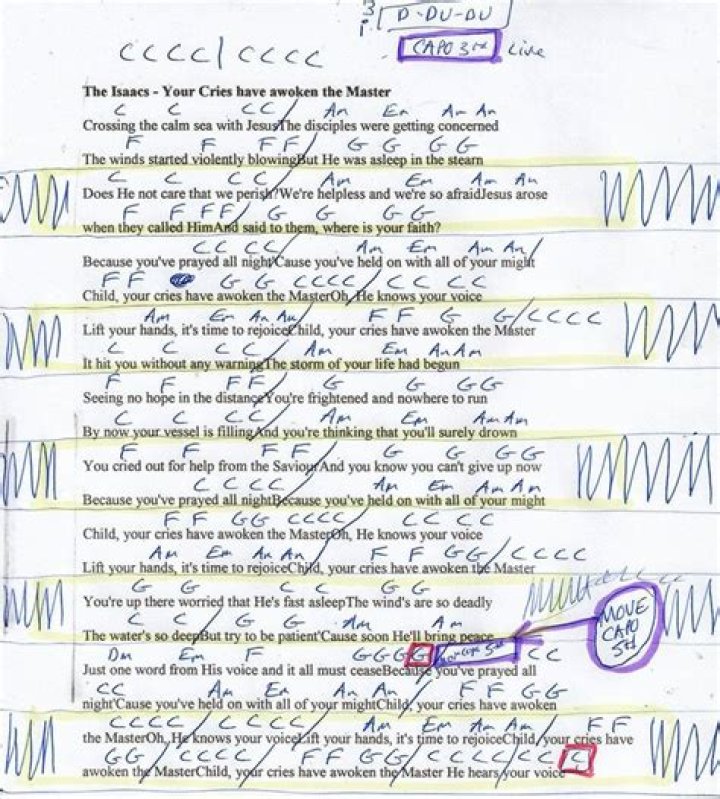 3 D-DU-DU
1.
C C C C / C C C C CAPO 3rd Live
The Isaacs - Your Cries have awoken the Master
C C C C / Am Em Am Am
Crossing the calm sea with JesusThe disciples were getting concerned
F F F F / G G G G
The winds started violently blowingBut He was asleep in the stearn
C C C C / Am Em Am Am
Does He not care that we perish?We're helpless and we're so afraidJesus arose
F F F F / G G G G
when they called HimAnd said to them, where is your faith?
C C C C / Am Em Am Am /
Because you've prayed all night'Cause you've held on with all of your might
F F G G C C C C / C C C C
Child, your cries have awoken the MasterOh, He knows your voice
Am Em Am Am / F F G G / C C C C
Lift your hands, it's time to rejoiceChild, your cries have awoken the Master
C C C C / Am Em Am Am
It hit you without any warningThe storm of your life had begun
F F F F / G G G G
Seeing no hope in the distanceYou're frightened and nowhere to run
C C C C / Am Em Am Am
By now your vessel is fillingAnd you're thinking that you'll surely drown
F F F F / G G G G
You cried out for help from the SaviourAnd you know you can't give up now
C C C C / Am Em Am Am
Because you've prayed all nightBecause you've held on with all of your might
F F G G C C C C / C C C C
Child, your cries have awoken the MasterOh, He knows your voice
Am Em Am Am / F F G G / C C C C
Lift your hands, it's time to rejoiceChild, your cries have awoken the Master
G G C C G G
You're up there worried that He's fast asleepThe wind's are so deadly
C C G G Am Am MOVE CAPO 5th
The water's so deepBut try to be patient'Cause soon He'll bring peace
Dm Em F G G G G CAPO 5th C C
Just one word from His voice and it all must ceaseBecause you've prayed all
C C / Am Em Am Am / F F G G
night'Cause you've held on with all of your mightChild, your cries have awoken
C C C C / C C C C / Am Em Am Am / F F
the MasterOh, He knows your voiceLift your hands, it's time to rejoiceChild, your cries have
G G / C C C C / F F G G / C C C C / C C C C / C
awoken the MasterChild, your cries have awoken the Master He hears your voice